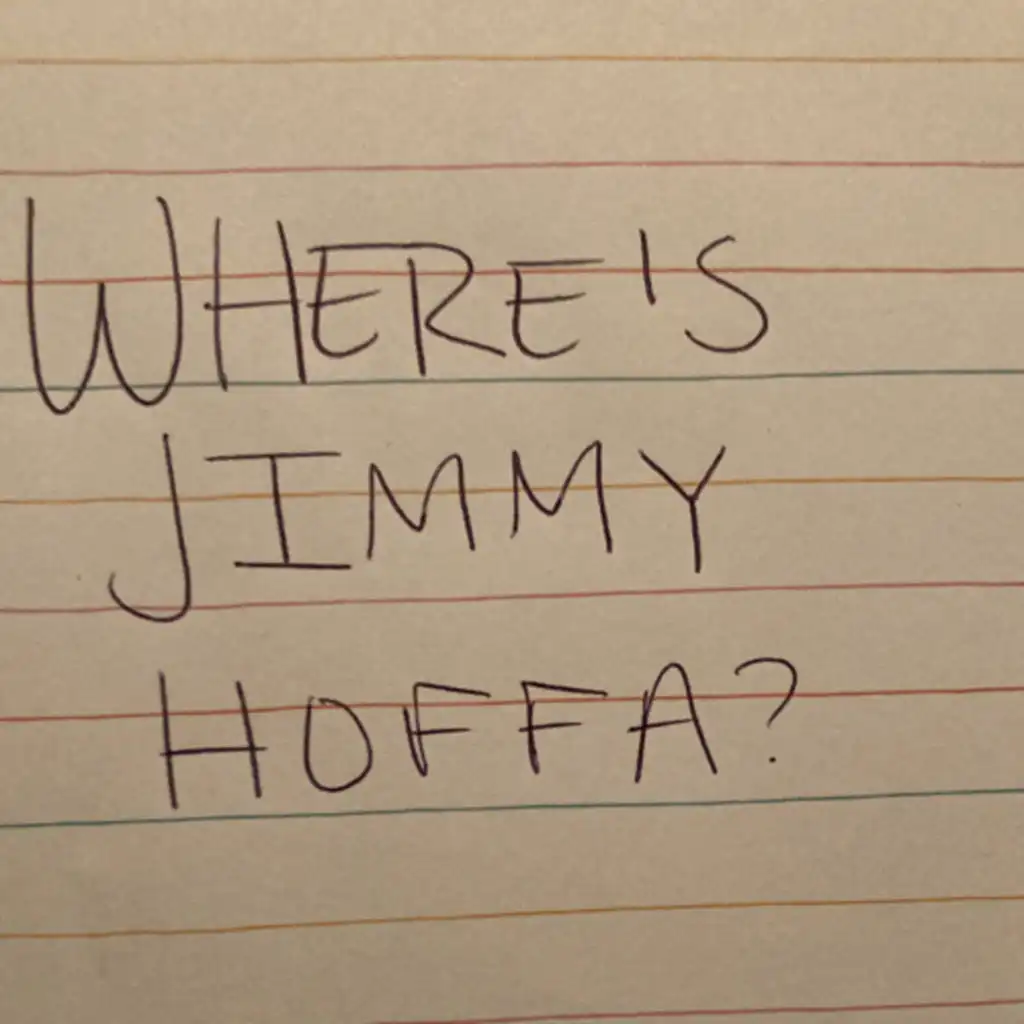 WHERE'S
JIMMY
HOFFA?